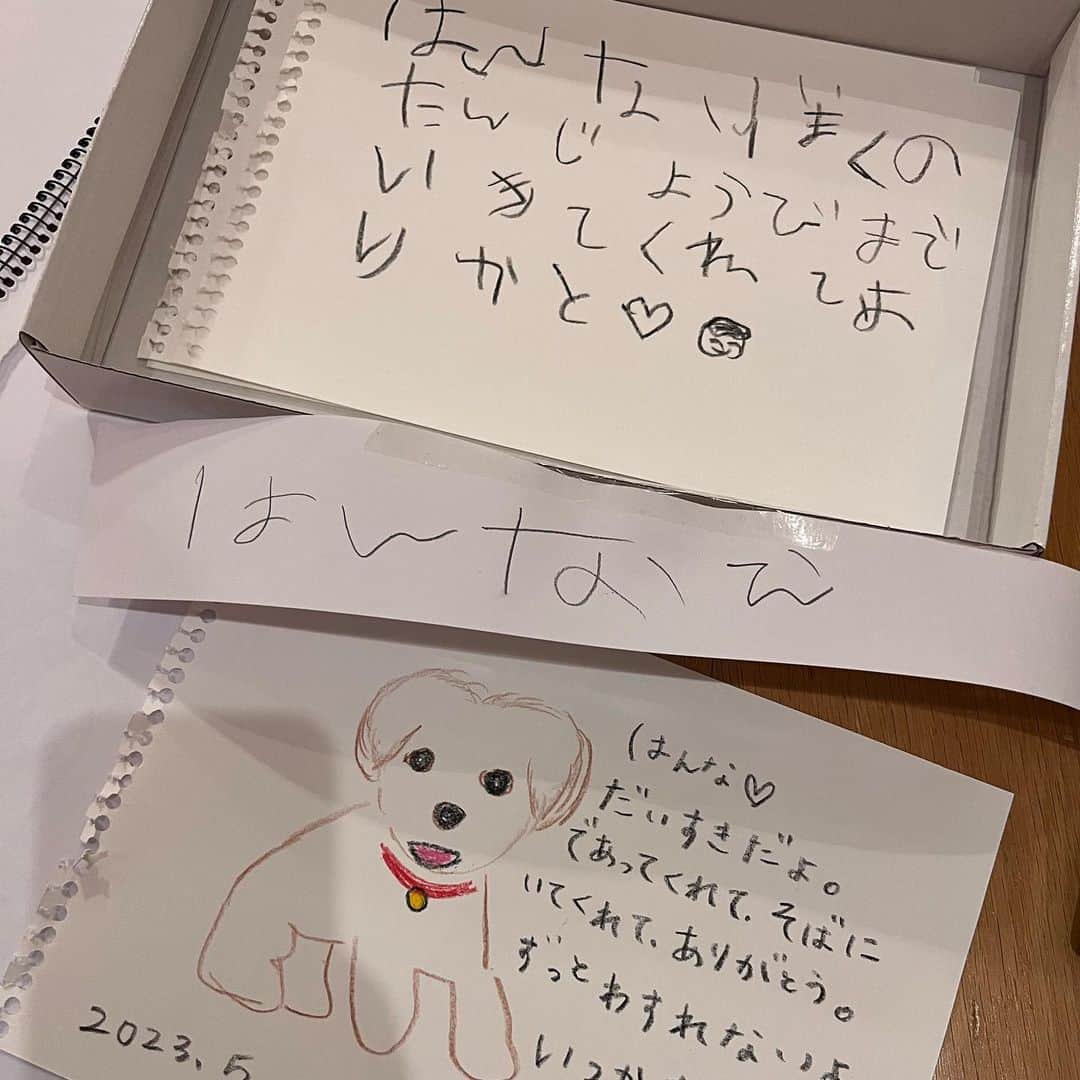 はんなはぼくの
たんじようびまで
いきてくれてあ
りかと♡
はんな
はんな♡
だいすきだよ。
であってくれて、そばに
いてくれて、ありがとう。
ずっとわすれないよ
いつか
2023.5